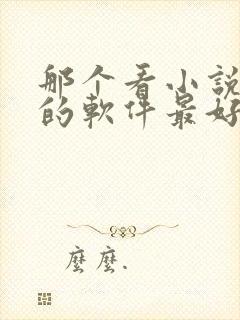 那个看小說
的軟件最好
麼麼.